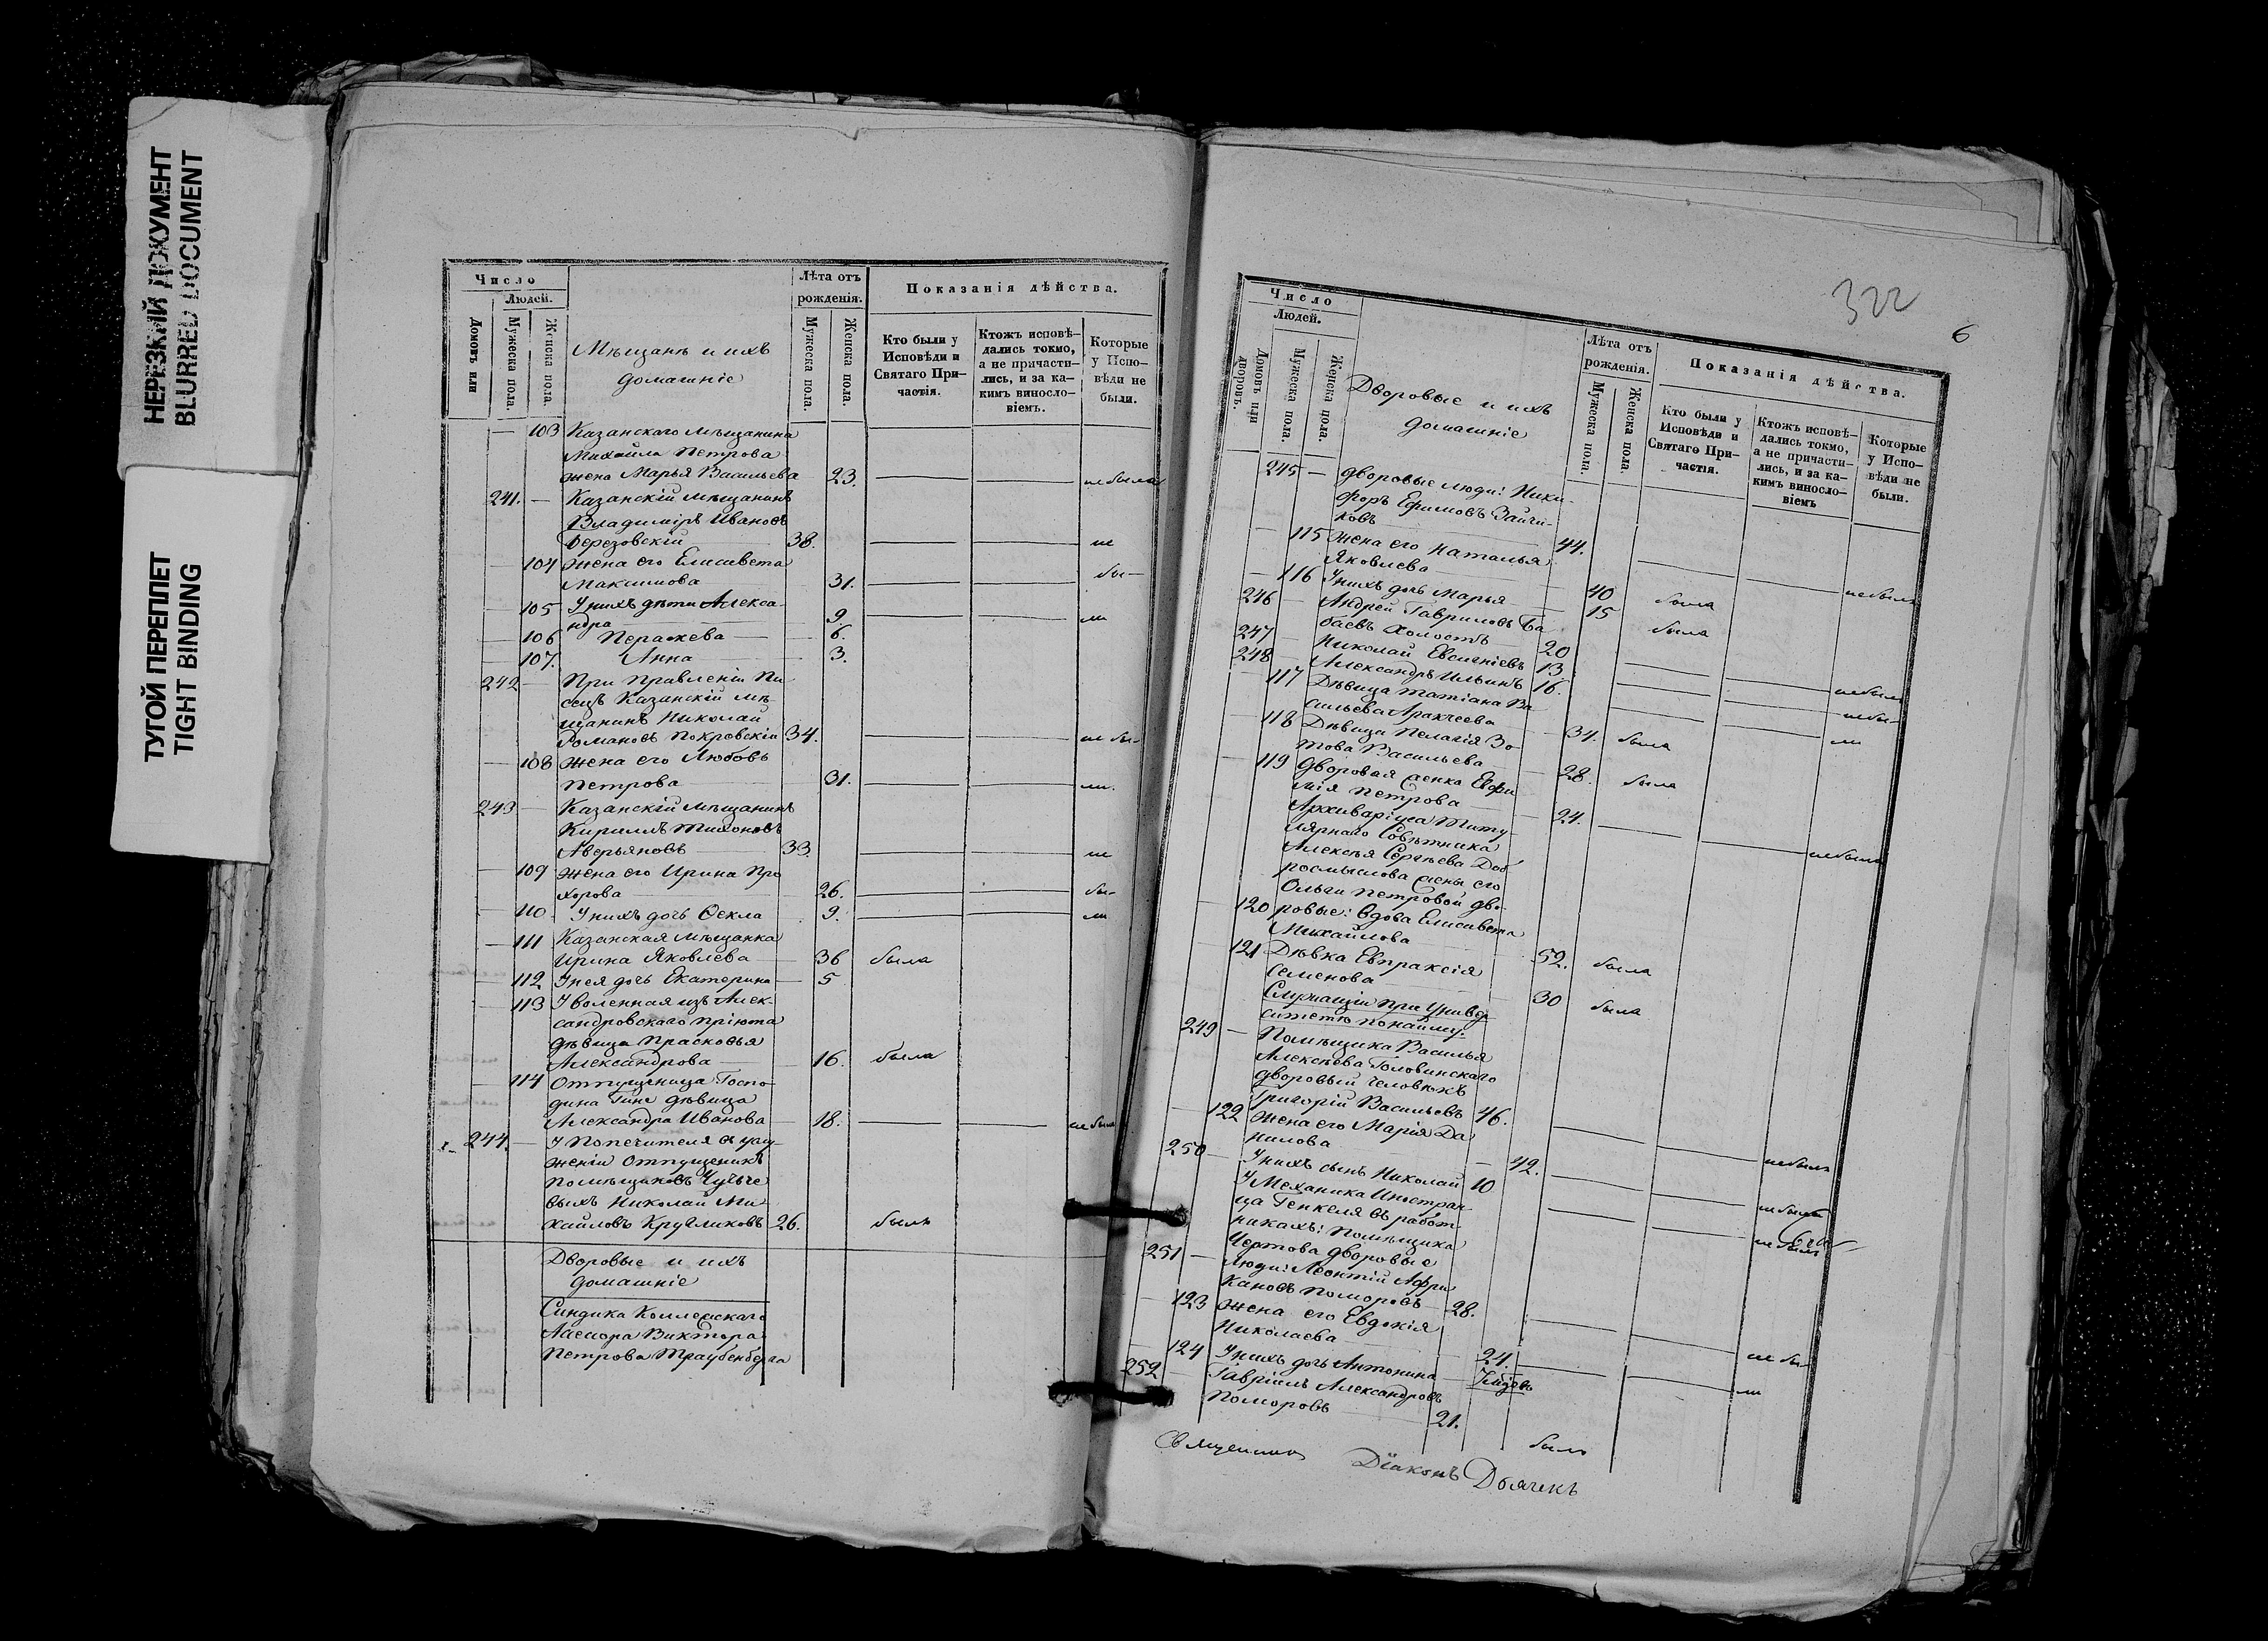 НЕРЕЗКИЙ ДОКУМЕНТ
BLURRED DOCUMENT
ТУГОЙ ПЕРЕПЛЕТ
TIGHT BINDING
Число
Людей.
Домовъ или
Мужеска пола.
Женска пола.
Мѣщанѣ и ихъ
домашніе
Лѣта отъ
рожденія.
Мужеска пола.
Женска пола.
Показанія дѣйства.
Кто были у
Исповѣди и
Святаго При-
частія.
Ктожъ исповѣ-
дались токмо,
а не причасти-
лись, и за ка-
кимъ винословіемъ.
Которые
у Испо-
вѣди не
были.
103 Казанскаго мѣщанина
Михайла Петрова
жена Марья Васильева 23. не была
241. Казанскій мѣщанинъ
Владиміръ Ивановъ
Березовскій 38. не
104 жена его Елисавета
Максимова 31. бы-
105 У нихъ дѣти Алекса-
ндра 9. ли
106 Параскева 6.
107. Анна 3.
242 При Правленіи Пи
сецъ Казанскій мѣ-
щанинъ Николай
Романовъ Покровскій 34. не бы-
108 жена его Любовь
Петрова 31. ли.
243 Казанскій мѣщанинъ
Кириллъ Тихоновъ
Аверьяновъ 33. не
109 жена его Ирина Про
хорова 26. бы-
110 У нихъ дочь Өекла 9. ли
111 Казанская мѣщанка
Ирина Яковлева 36 была
112 У нея дочь Екатерина 5
113 Уволенная изъ Алек-
сандровскаго пріюта
дѣвица Прасковья
Александрова 16. была
114 Отпущеница Госпо-
дина Гине дѣвица
Александра Иванова 18. не была
244. У Попечителя въ услу-
женіи отпущеникъ
помѣщиковъ
выхъ Николай Ми
хайловъ Кругликовъ 26. былъ
Дворовые и ихъ
домашніе
Синдика Коллежскаго
Асессора Виктора
Петрова Траубенберга
322
6
Число
Людей.
Домовъ или
дворовъ.
Мужеска пола.
Женска пола.
Дворовые и ихъ
домашніе
Лѣта отъ
рожденія.
Мужеска пола.
Женска пола.
Показанія дѣйства.
Кто были у
Исповѣди и
Святаго При-
частія.
Ктожъ исповѣ-
дались токмо,
а не причасти-
лись, и за ка-
кимъ винословіемъ
Которые
у Испо-
вѣди не
были.
245 дворовые люди: Ники-
форъ Ефимовъ Зайчи-
ковъ 44. не былъ
115 жена его Наталья
Яковлева 40 была
116 У нихъ дочь Марья 15 была
246 Андрей Гавриловъ Ба
баевъ холостъ 20 не былъ
247 Николай Евсигніевъ 13. не бы-
248 Александръ Ильинъ 16. ли
117 Дѣвица Татіана Ва
сильева Аракчеева 34. была
118 Дѣвица Пелагія Зо-
това Васильева 28. была
119 Дворовая женка Евфи
мія Петрова 24. не была
Архиваріуса Титу-
лярнаго Совѣтника
Алексѣя Сергѣева Доб
росмыслова жены его
Ольги Петровой дво-
120 ровые: вдова Елисавета
Михайлова 52. была
121 Дѣвка Евпраксія
Семенова 30 была
Служащіи при Универ
ситетѣ по найму:
249 Помѣщика Василья
Алексѣева Головинскаго
дворовый человѣкъ
Григорій Васильевъ 46. не былъ
122 жена его Марія Да
нилова 42. не была
250 У нихъ сынъ Николай 10 не былъ
У Механика Иностран
ца Генкеля въ работ-
никахъ: помѣщика
Чертова дворовые
251 люди: Леонтій Афри
кановъ Поморовъ 28. не бы-
123 жена его Евдокія
Николаева 24. ли
124 У нихъ дочь Антонина
252 Гавріилъ Александровъ
Поморовъ 21. былъ
Священникъ Діаконъ Дьячекъ